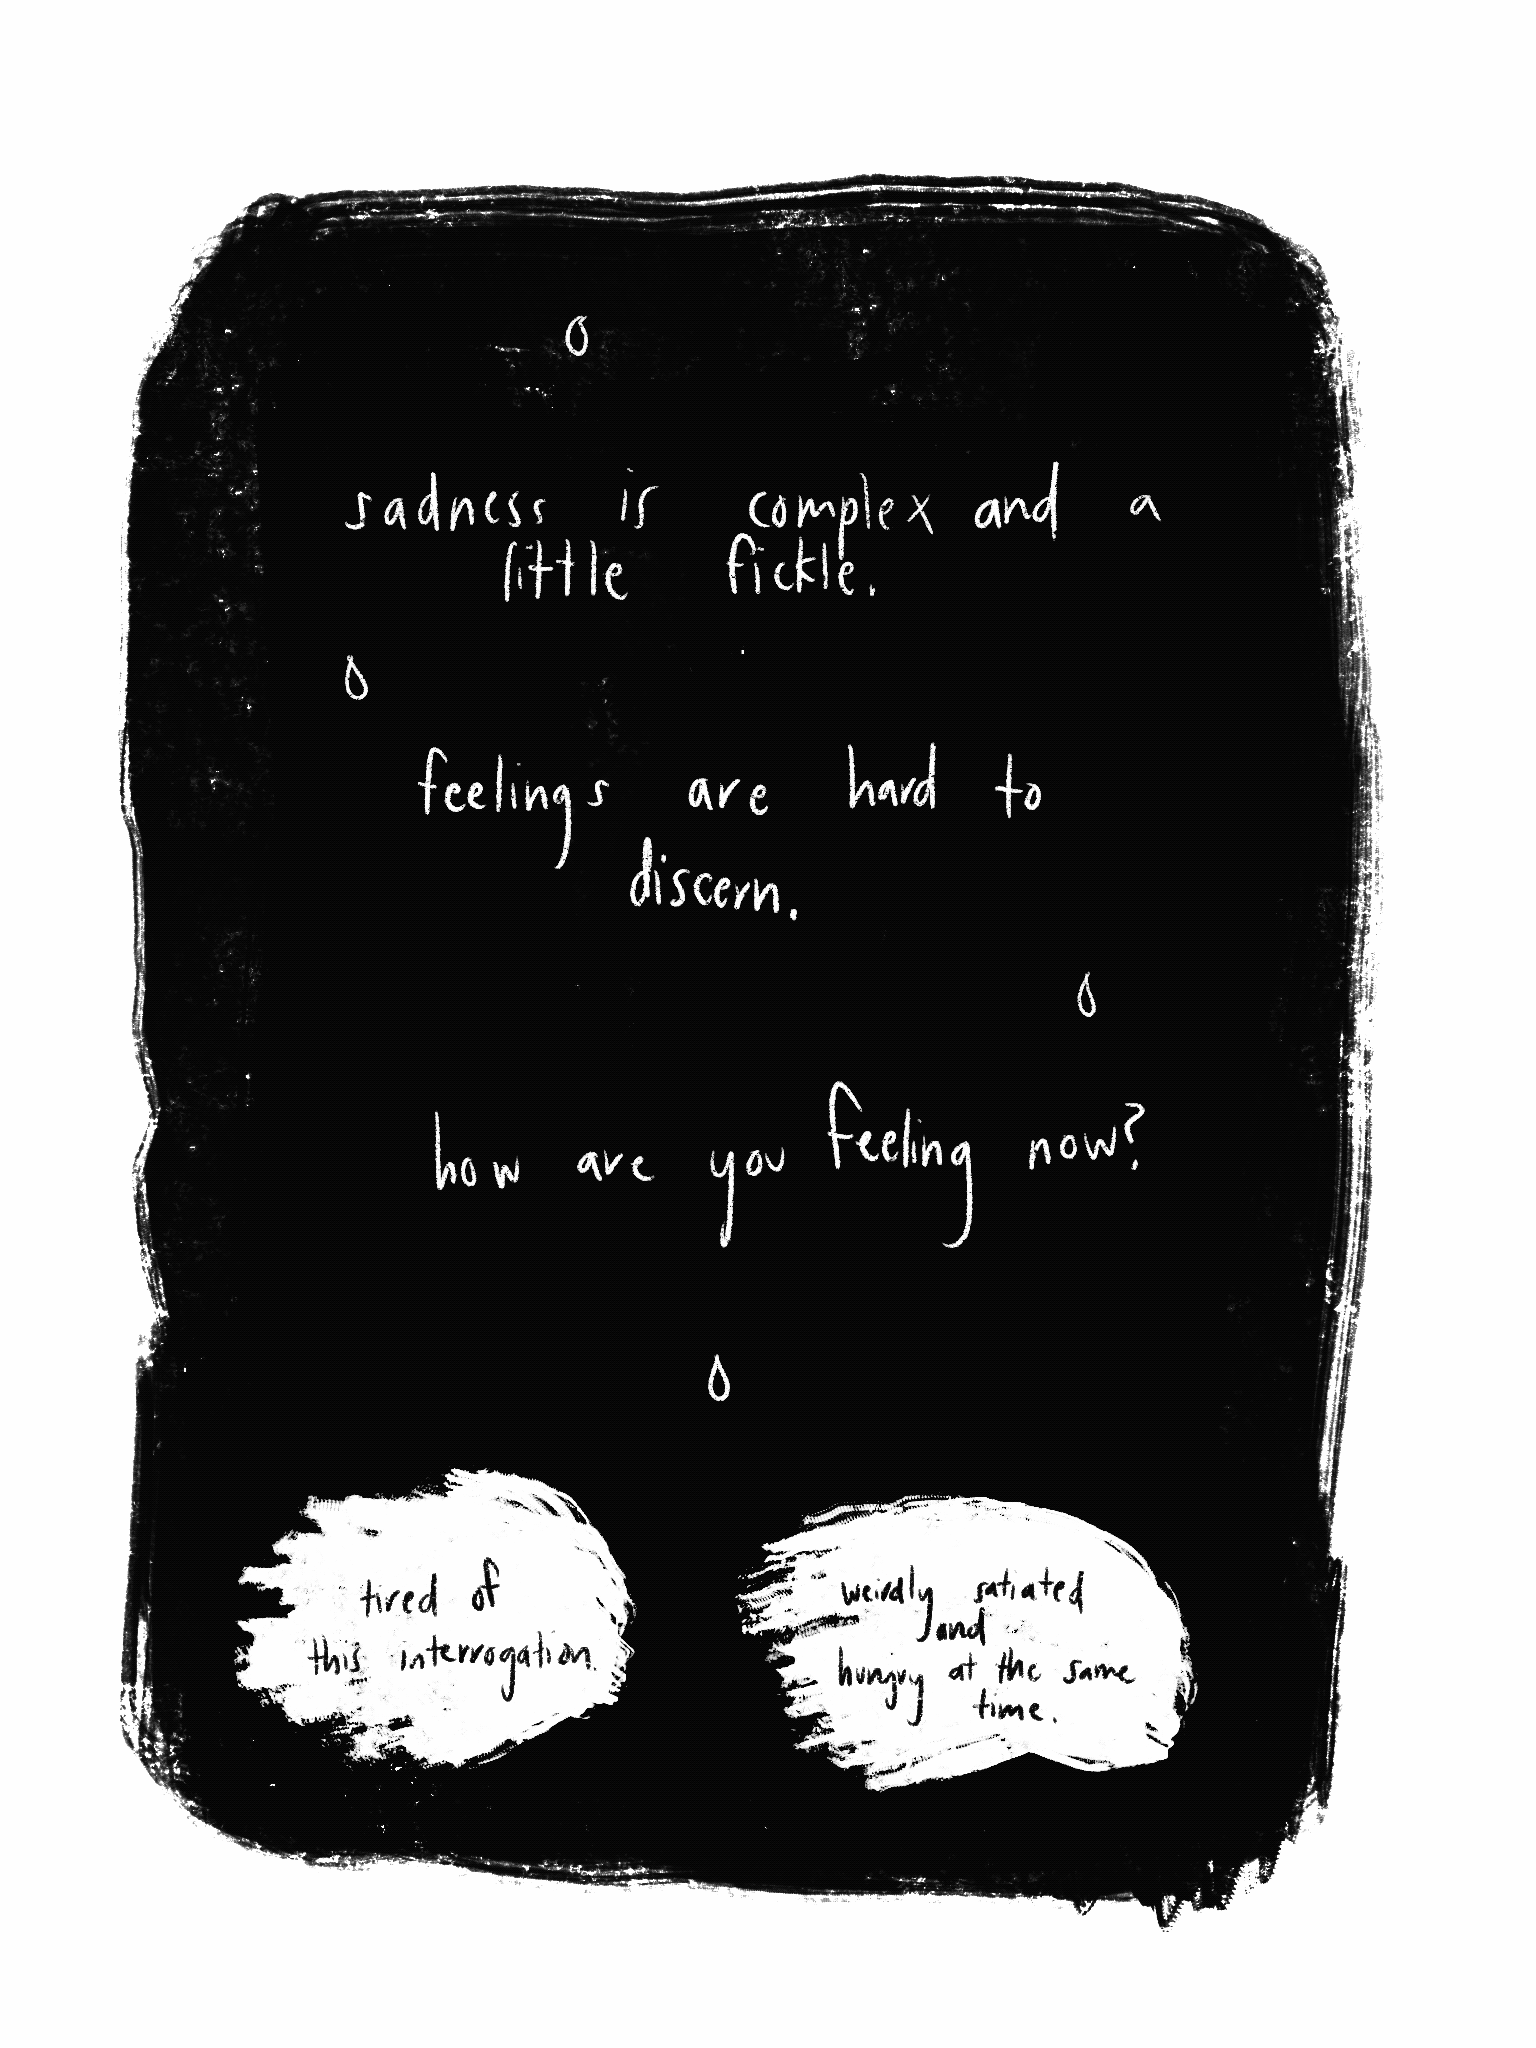 sadness is complex and a
little fickle.
feelings are hard to
discern.
how are you feeling now?
tired of
this interrogation.
weirdly satiated
and
hungry at the same
time.